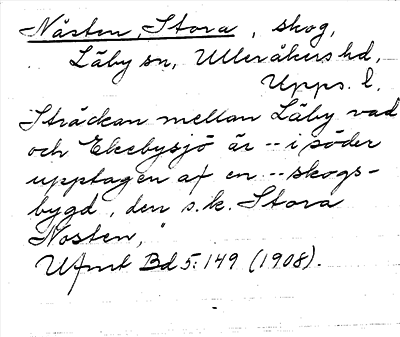 Nåsten, Stora, skog,
Läby sn, Ulleråkers hd,
Upps. l.
Sträckan mellan Läby vad
och Ekebysjö är -- i söder
upptagen af en -- skogs-
bygd, den s.k. Stora
Nosten,"
Ufmt Bd 5: 149 (1908).